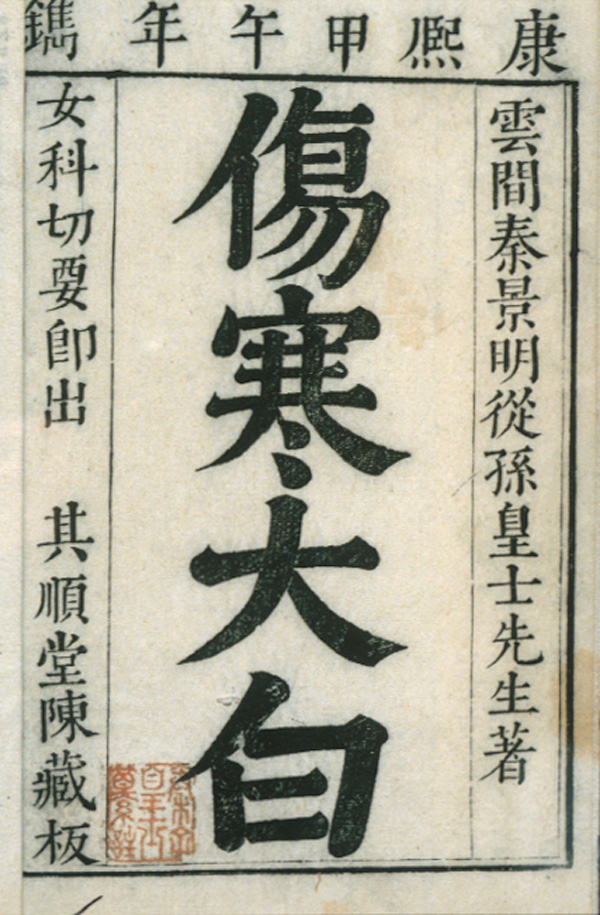 康熙甲午年鐫
雲間秦景明從孫皇士先生著
傷寒大白
女科切要卽出 其順堂陳藏板